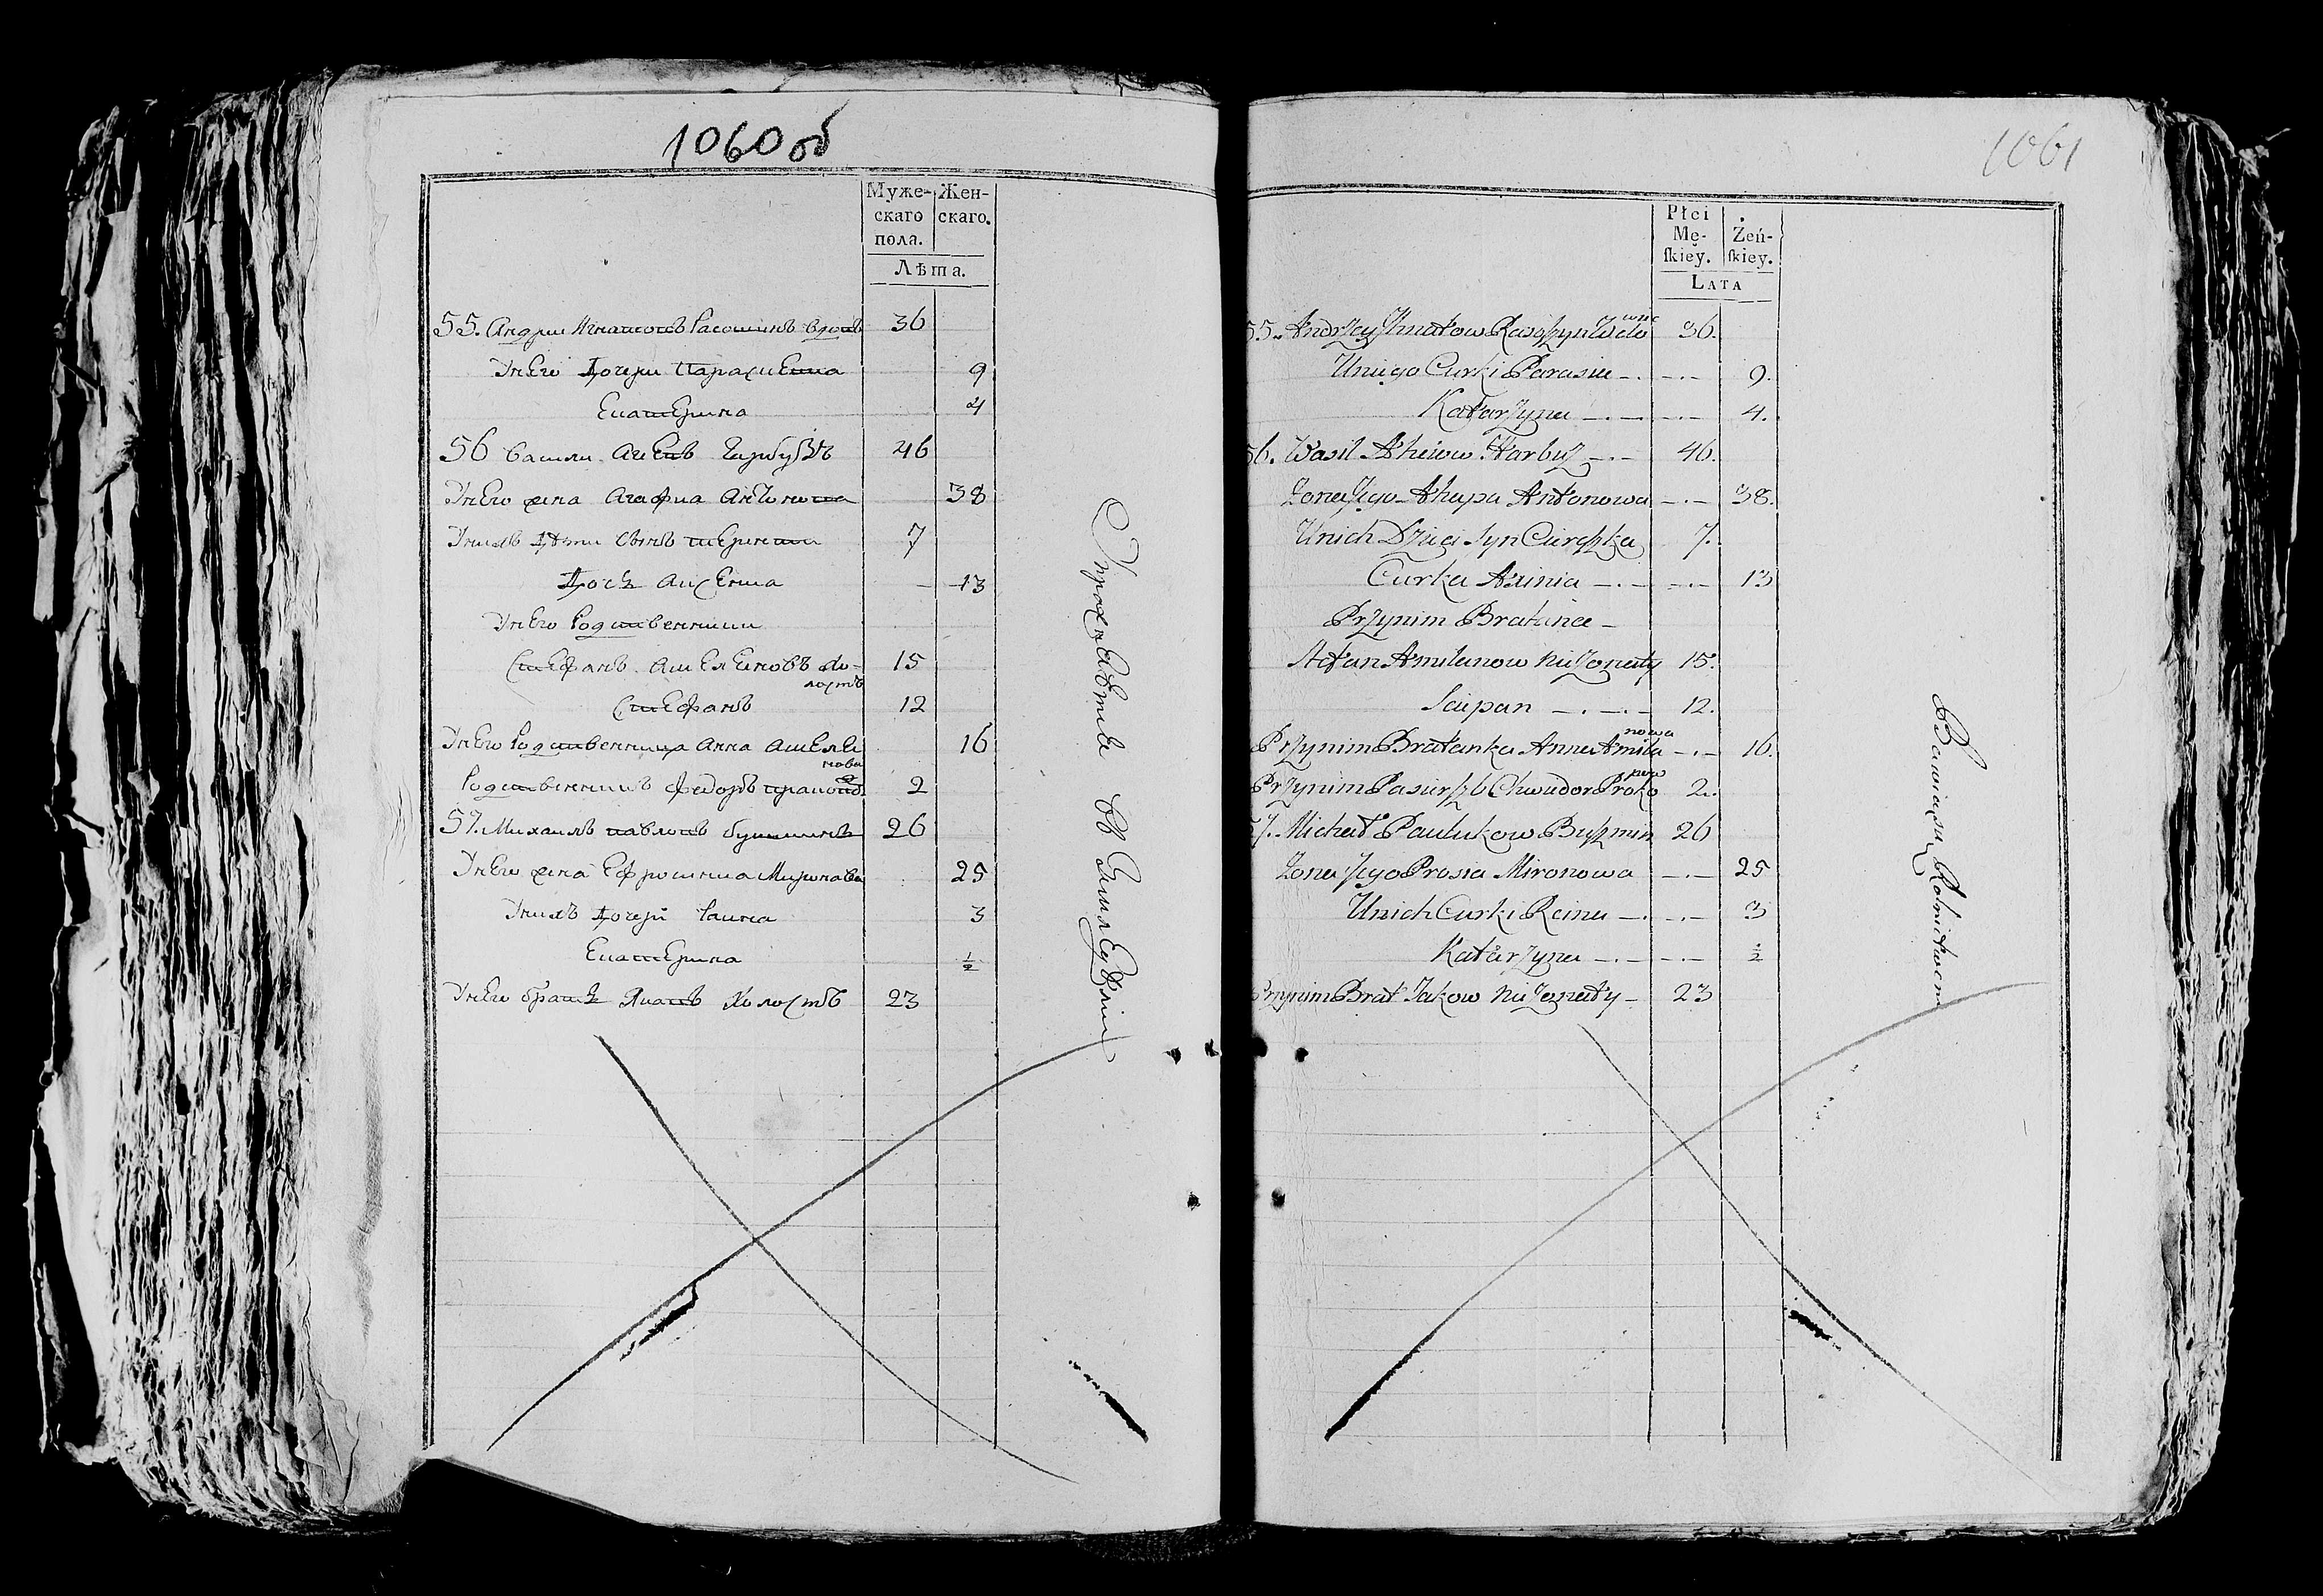 1060 об
Муже-
скаго
пола.
Жен-
скаго.
Лѣта.
55. Андри Игнатовъ Расошинъ вдовъ 36
У него дочери Парасиевиа 9
Екатерина 4
56 Васили Акевъ Гарбузъ 46
У него жена Агафиа Антонова 38
У нихъ дѣти сынъ 7
дочь Аксениа 13
У него родственники
Стефанъ Амеленовъ хо-
лостъ 15
Стефанъ 12
У него родственница Анна Амеле
нова 16
Родственникъ Федоръ 2
57. Михаилъ Павловъ Бушминъ 26
У него жена Ефросиниа Миронава 25
У нихъ дочери Раина 3
Екатерина ½
У него братъ Яковъ холостъ 23
Упражняѣтся въ Земледѣліи
1061
Płci
Mę-
skiey.
Żeń-
skiey.
Lata
55. Andrzey Ihnatow Rasoszyn Wdo
wiec 36.
Uniego Curki Parasia 9.
Katarzyna 4.
56. Wasil Akeiow Harbuz 46.
Zona Jego Ahapa Antonowa 38.
Unich Dzieci Syn Cireszka 7.
Curka Axinia 13
Przynim Bratanie
Stefan Amilanow Nieżonaty 15.
Sciepan 12.
Przynim Bratanka Anna Amila
nowa 16.
Przynim Pasierzb Chwiedor Proko
pow 2.
57. Michał Pawlukow Buszmin 26
Zona Jego Prosia Mironowa 25
Unich Curki Reina 3
Katarzyna ½
Przynim Brat Jakow Nieżonaty 23
Bawią się Rolnictwem